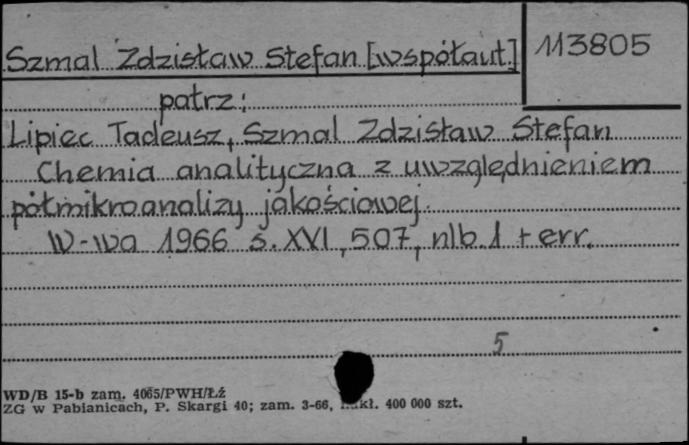 Szmal Zdzisław Stefan [współaut.]
113805
patrz:
Lipiec Tadeusz, Szmal Zdzisław Stefan
Chemia analityczna z uwzględnieniem
półmikroanalizy jakościowej.
W-wa 1966 s. XVI, 507, nlb. 1 + err.
5
WD/B 15-b zam. 4065/PWH/Łź
ZG w Pabianicach, P. Skargi 40; zam. 3-66, 400 000 szt.